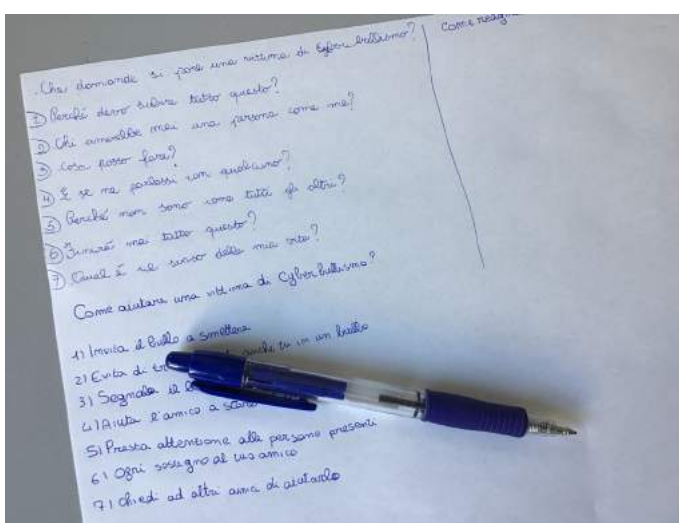 Che domande si pone una vittima di Cyberbullismo?
1) Perché devo subire tutto questo?
2) Chi amerebbe mai una persona come me?
3) Cosa posso fare?
4) E se ne parlassi con qualcuno?
5) Perché non sono come tutti gli altri?
6) Finirà mai tutto questo?
7) Qual è il senso della mia vita?
Come aiutare una vittima di Cyberbullismo?
1) Invita il bullo a smettere
2) Evita di anche tu in un bullo
3) Segnala il
4) Aiuta l'amico a
5) Presta attenzione alle persone presenti
6) Ogni sostegno al tuo amico
7) Chiedi ad altri amici di aiutarlo
Come